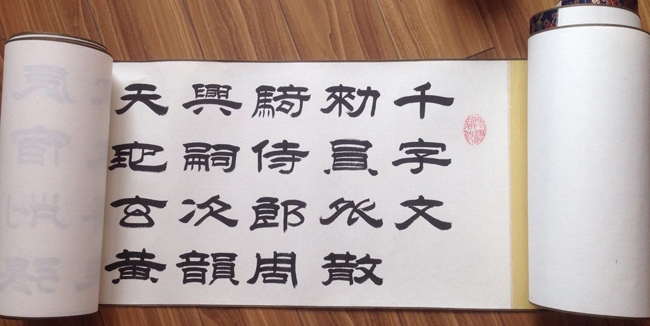 千字文
勑員外散
騎侍郎周
興嗣次韻
天地玄黃